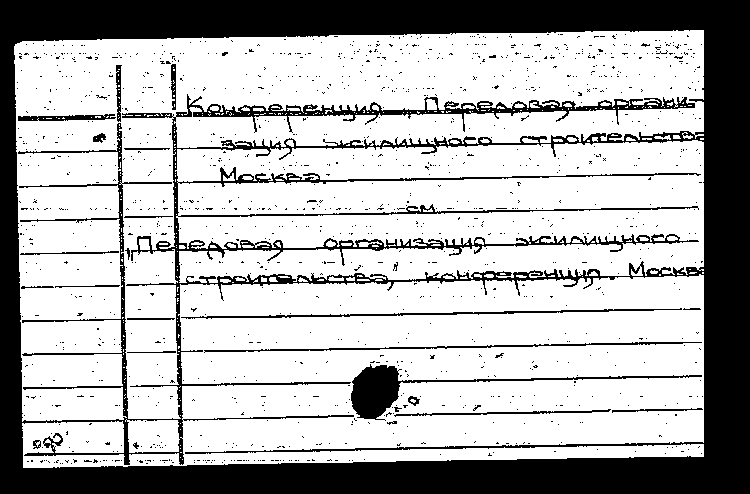 Конференция „Передовая органи-
зация жилищного строительства
Москва.
см
„Передовая организация жилищного
строительства," конференция. Москва